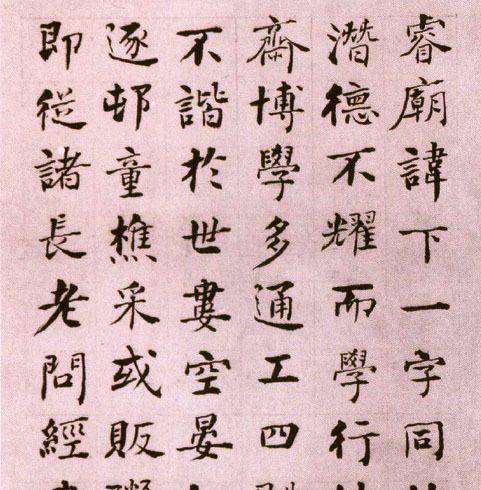 睿廟諱下一字同
潛德不耀而學行
齋博學多通工四
不諧於世婁空晏
逐邨童樵采或販
即從諸長老問經